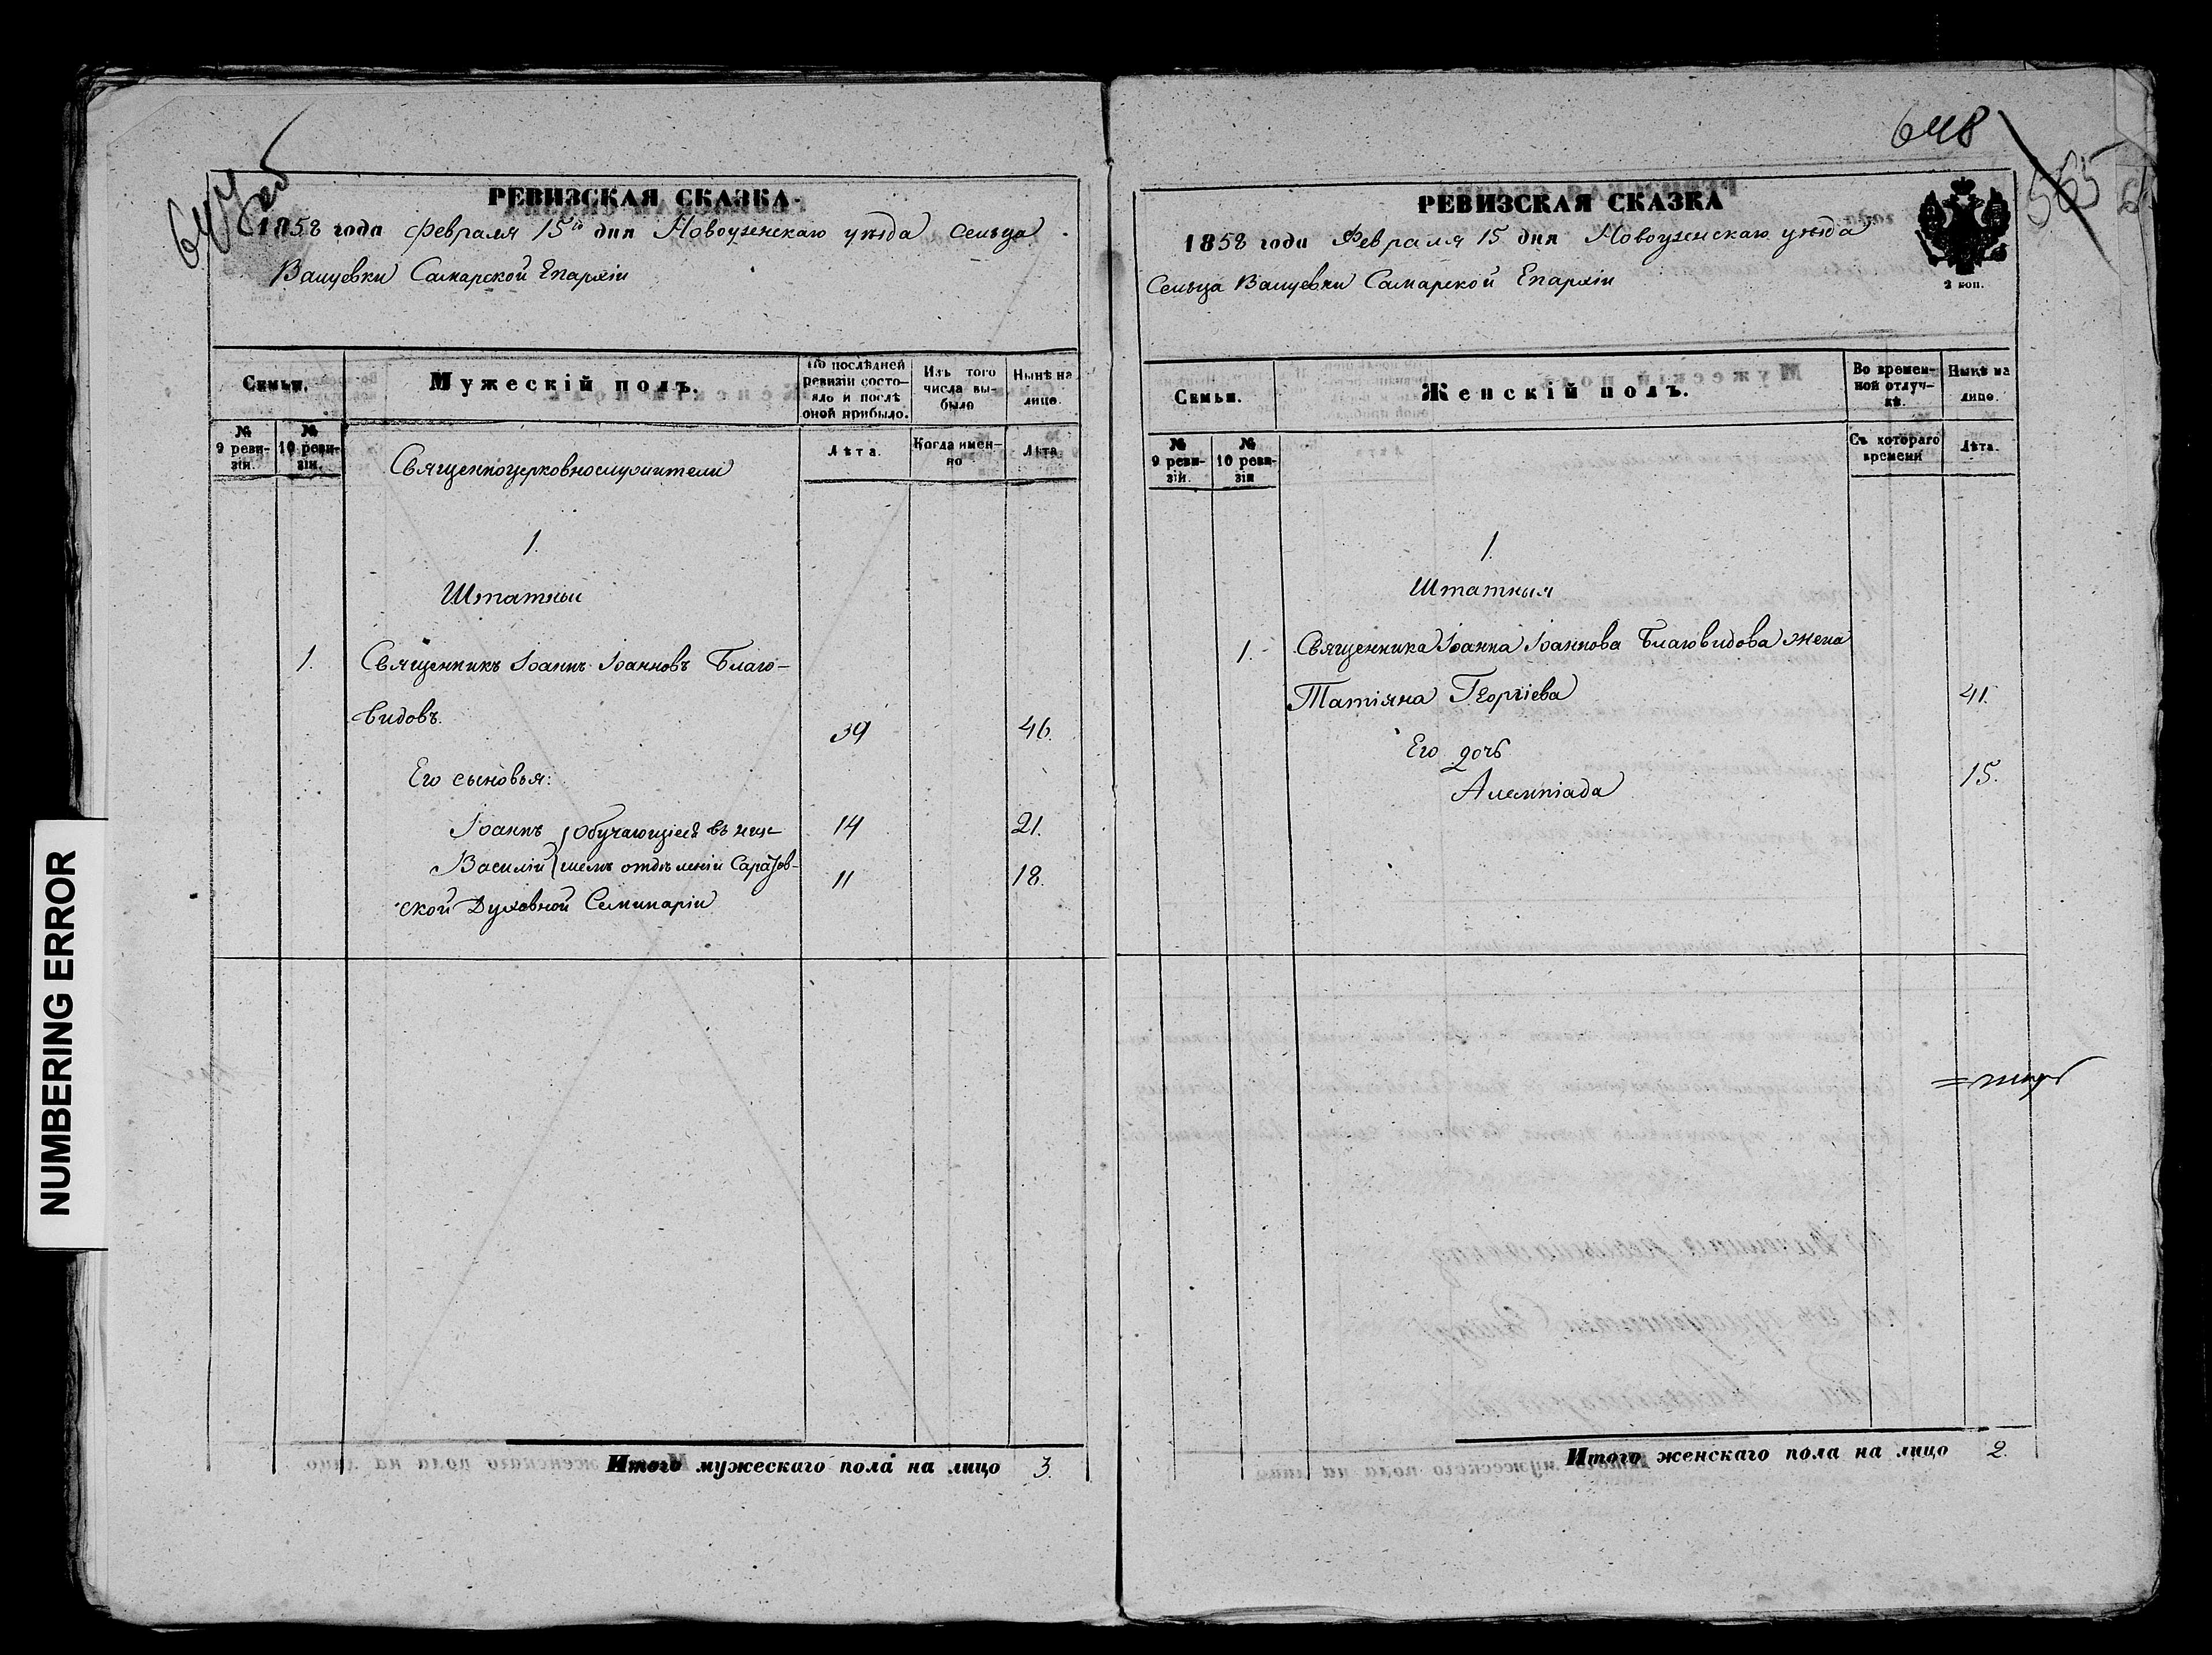 648
565
РЕВИЗСКАЯ СКАЗКА.
1858 года Февраля 15го дня Новоузенскаго уѣзда сельца
Ващевки Самарской Епархіи
Семьи.
Мужескій полъ.
По послѣдней ревизіи состояло и послѣ оной прибыло.
Изъ того числа выбыло
Нынѣ на лицо.
№ 9 ревизіи.
№ 10 ревизіи.
Лѣта.
Когда именно
Лѣта
Священноцерковнослужители
1.
Штатныи
1. Священникъ Іоаннъ Іоанновъ Благо-
видовъ. 39 46.
Его сыновья:
Іоаннъ обучающіеся въ низ- 14 21.
Василій шемъ отдѣленіи Саратов- 11 18.
ской Духовной Семинаріи
Итого мужескаго пола на лицо 3.
РЕВИЗСКАЯ СКАЗКА
1858 года Февраля 15 дня Новоузенскаго уѣзда
Сельца Ващевки Самарской Епархіи
2 коп.
Семьи.
Женскій полъ.
Во временной отлучкѣ.
Нынѣ на лицо.
№ 9 ревизіи.
№ 10 ревизіи
Съ котораго времени
Лѣта.
1.
Штатныя
1. Священника Іоанна Іоаннова Благовидова жена
Татіяна Георгіева 41.
Его дочь
Алемпіада 15.
Итого женскаго пола на лицо 2.
NUMBERING ERROR